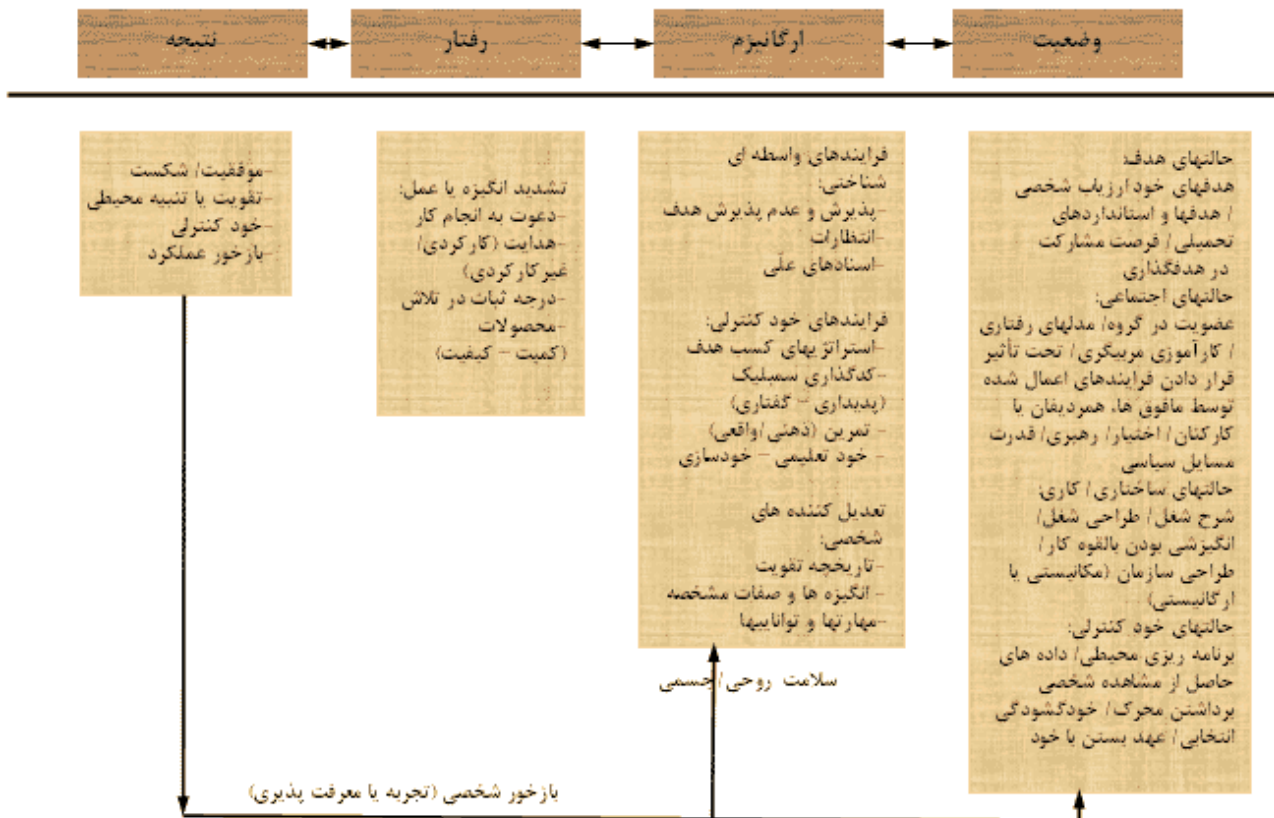 وضعیت
ارگانیزم
رفتار
نتیجه
حالتهای هدف:
هدفهای خود ارزیاب شخصی
/ هدفها و استانداردهای
تحمیلی/ فرصت مشارکت
در هدفگذاری
حالتهای اجتماعی:
عضویت در گروه/ مدلهای رفتاری
/ کارآموزی مربیگری/ تحت تأثیر
قرار دادن فرایندهای اعمال شده
توسط مافوق ها، همردیفان یا
کارکنان/ اختیار/ رهبری/ قدرت
مسایل سیاسی
حالتهای ساختاری/ کاری:
شرح شغل/ طراحی شغل/
انگیزشی بودن بالقوه کار/
طراحی سازمان (مکانیستی یا
ارگانیستی)
حالتهای خود کنترلی:
برنامه ریزی محیطی/ داده های
حاصل از مشاهده شخصی
برداشتن محرک/ خودگشودگی
انتخابی/ عهد بستن با خود
فرایندهای واسطه ای
شناختی:
-پذیرش و عدم پذیرش هدف
-انتظارات
-اسنادهای علّی
فرایندهای خود کنترلی:
-استراتژیهای کسب هدف
-کدگذاری سمبلیک
(پدیداری – گفتاری)
- تمرین (ذهنی/واقعی)
- خود تعلیمی – خودسازی
تعدیل کننده های
شخصی:
-تاریخچه تقویت
- انگیزه ها و صفات مشخصه
-مهارتها و تواناییها
تشدید انگیزه یا عمل:
-دعوت به انجام کار
-هدایت (کارکردی/
غیرکارکردی)
-درجه ثبات در تلاش
-محصولات
(کمیت – کیفیت)
-موفقیت/ شکست
-تقویت یا تنبیه محیطی
-خود کنترلی
-بازخور عملکرد
سلامت روحی/جسمی
بازخور شخصی (تجربه یا معرفت پذیری)